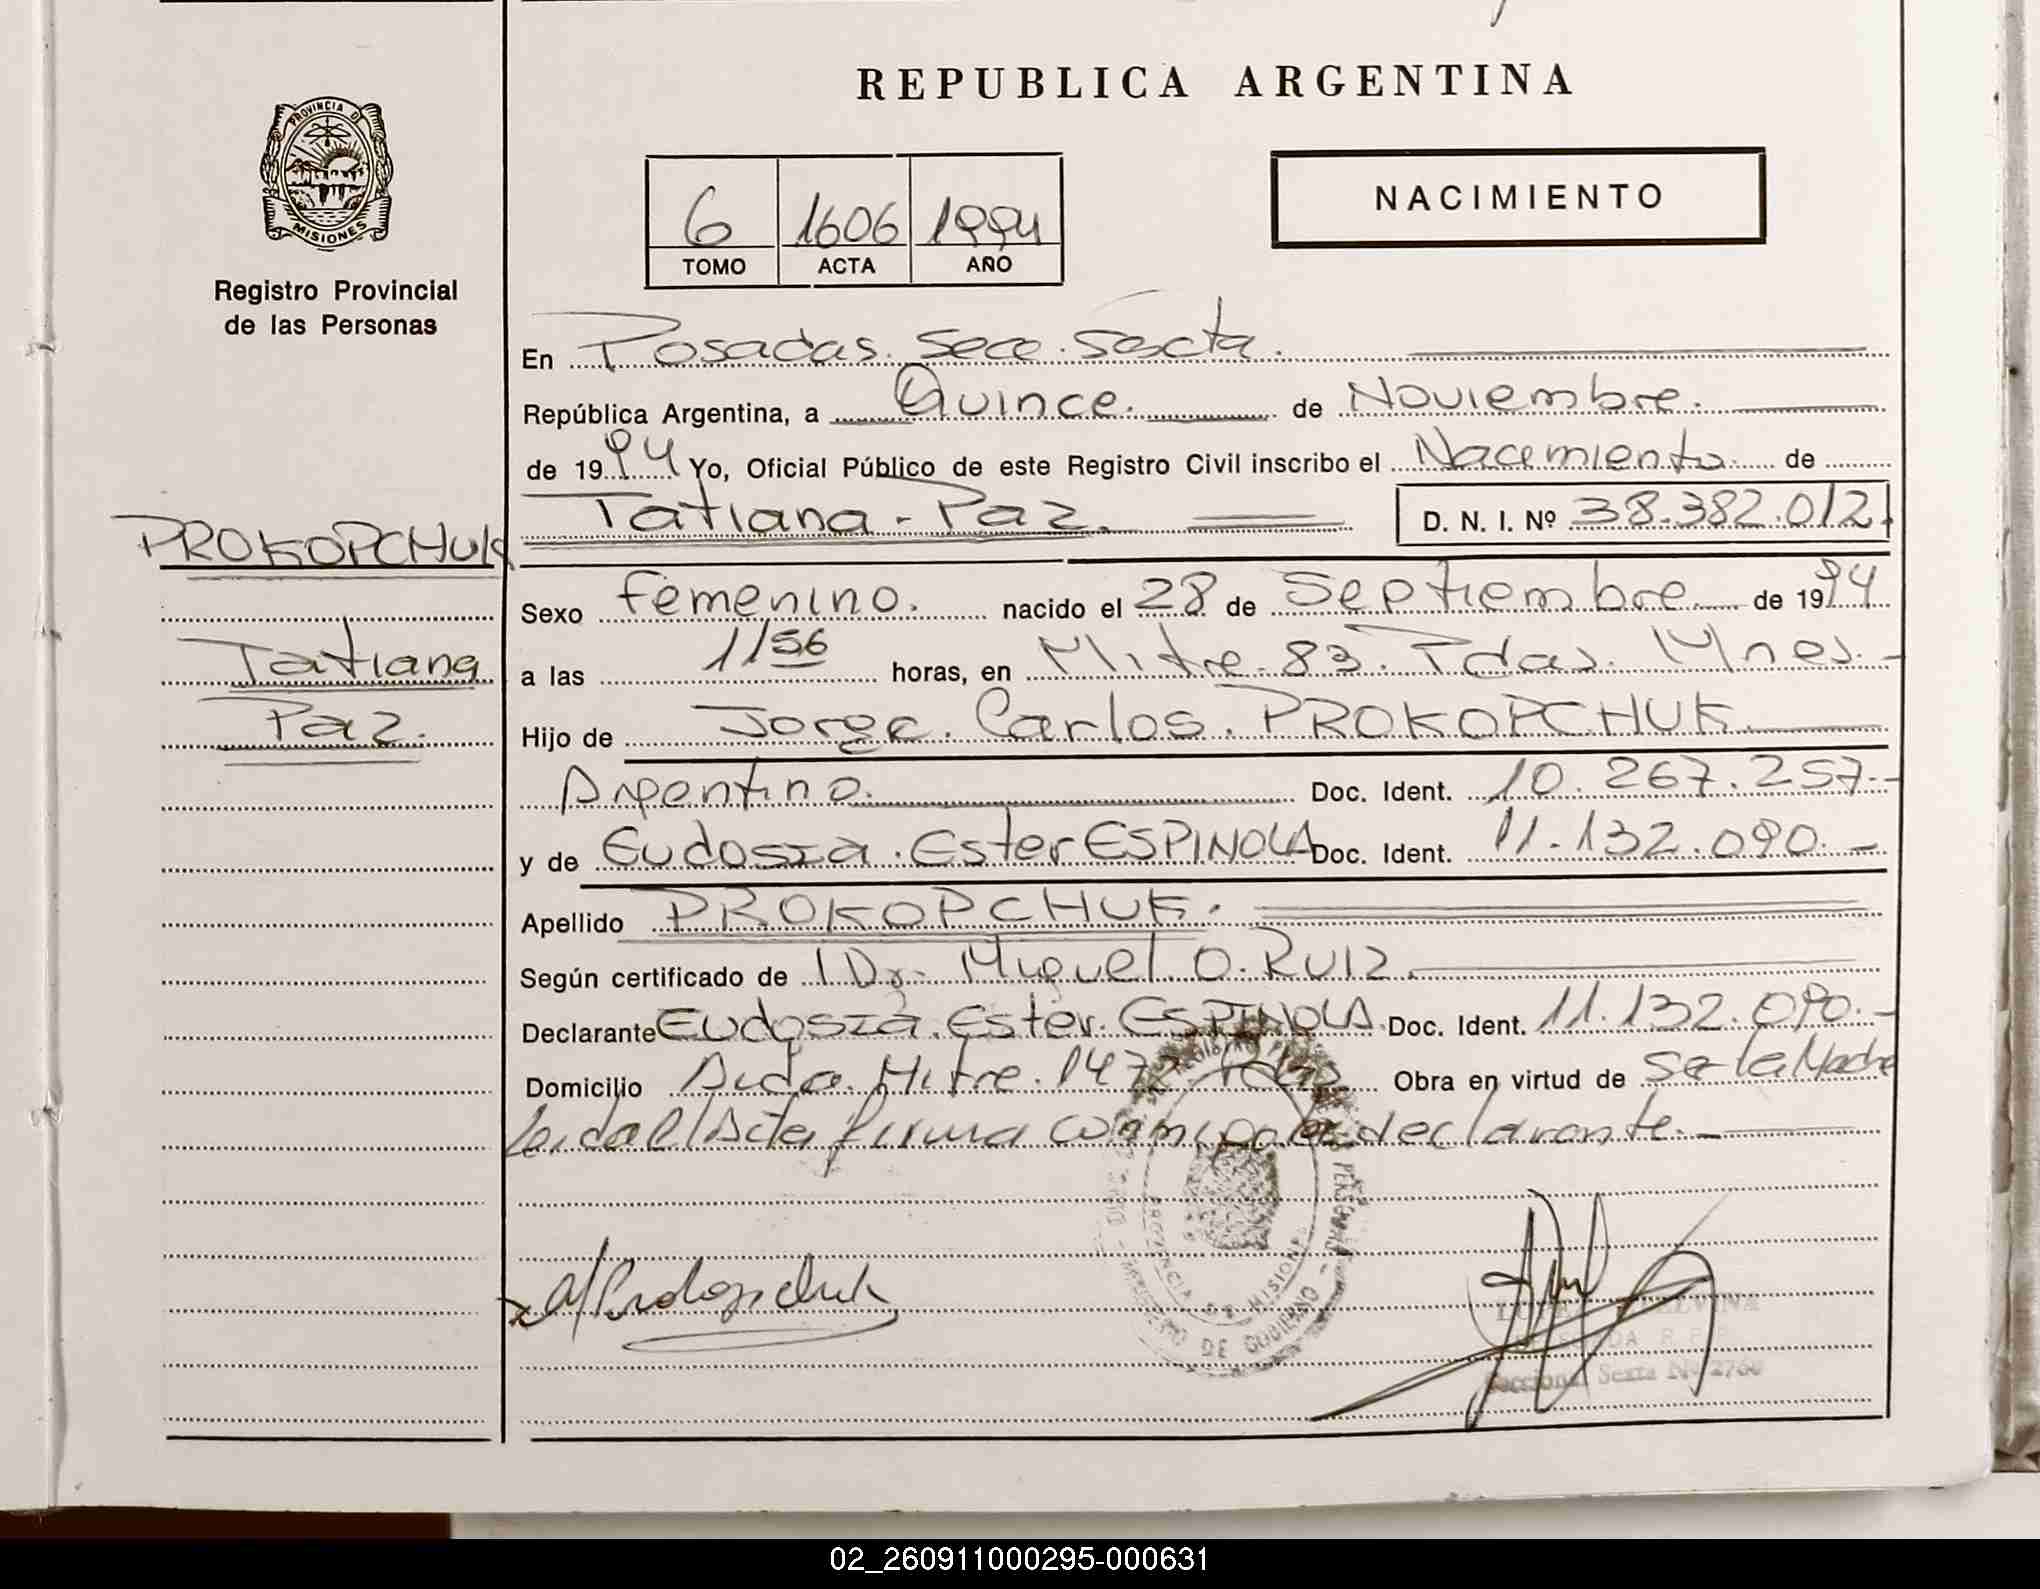 PROVINCIA D
MISIONES
Registro Provincial
de las Personas
PROKOPCHUK
Tatiana
Paz.
REPUBLICA ARGENTINA
6 1606 1994
TOMO ACTA AÑO
NACIMIENTO
En Posadas. Secc. Sexta.
República Argentina, a Quince. de Noviembre.
de 1994 Yo, Oficial Público de este Registro Civil inscribo el Nacimiento de
Tatiana - Paz. D. N. I. Nº 38.382.012.
Sexo femenino. nacido el 28 de Septiembre de 1994
a las 1156 horas, en Mitre. 83. Pdas. Mnes.-
Hijo de Jorge. Carlos. PROKOPCHUK
Argentino. Doc. Ident. 10.267.257.-
y de Eudosia. Ester ESPINOLA Doc. Ident. 11.132.090.-
Apellido PROKOPCHUK.
Según certificado de Dr. Miguel O. RUIZ.
Declarante Eudosia. Ester. ESPINOLA. Doc. Ident. 11.132.090.-
Domicilio Avda. Mitre. 1472 Pdas Obra en virtud de Ser la Madre
Leída el Acta firma conmigo la declarante.-
PROVINCIA DE MISIONES
DE GOBIERNO
Seccional Sexta Nº 2760
02_260911000295-000631